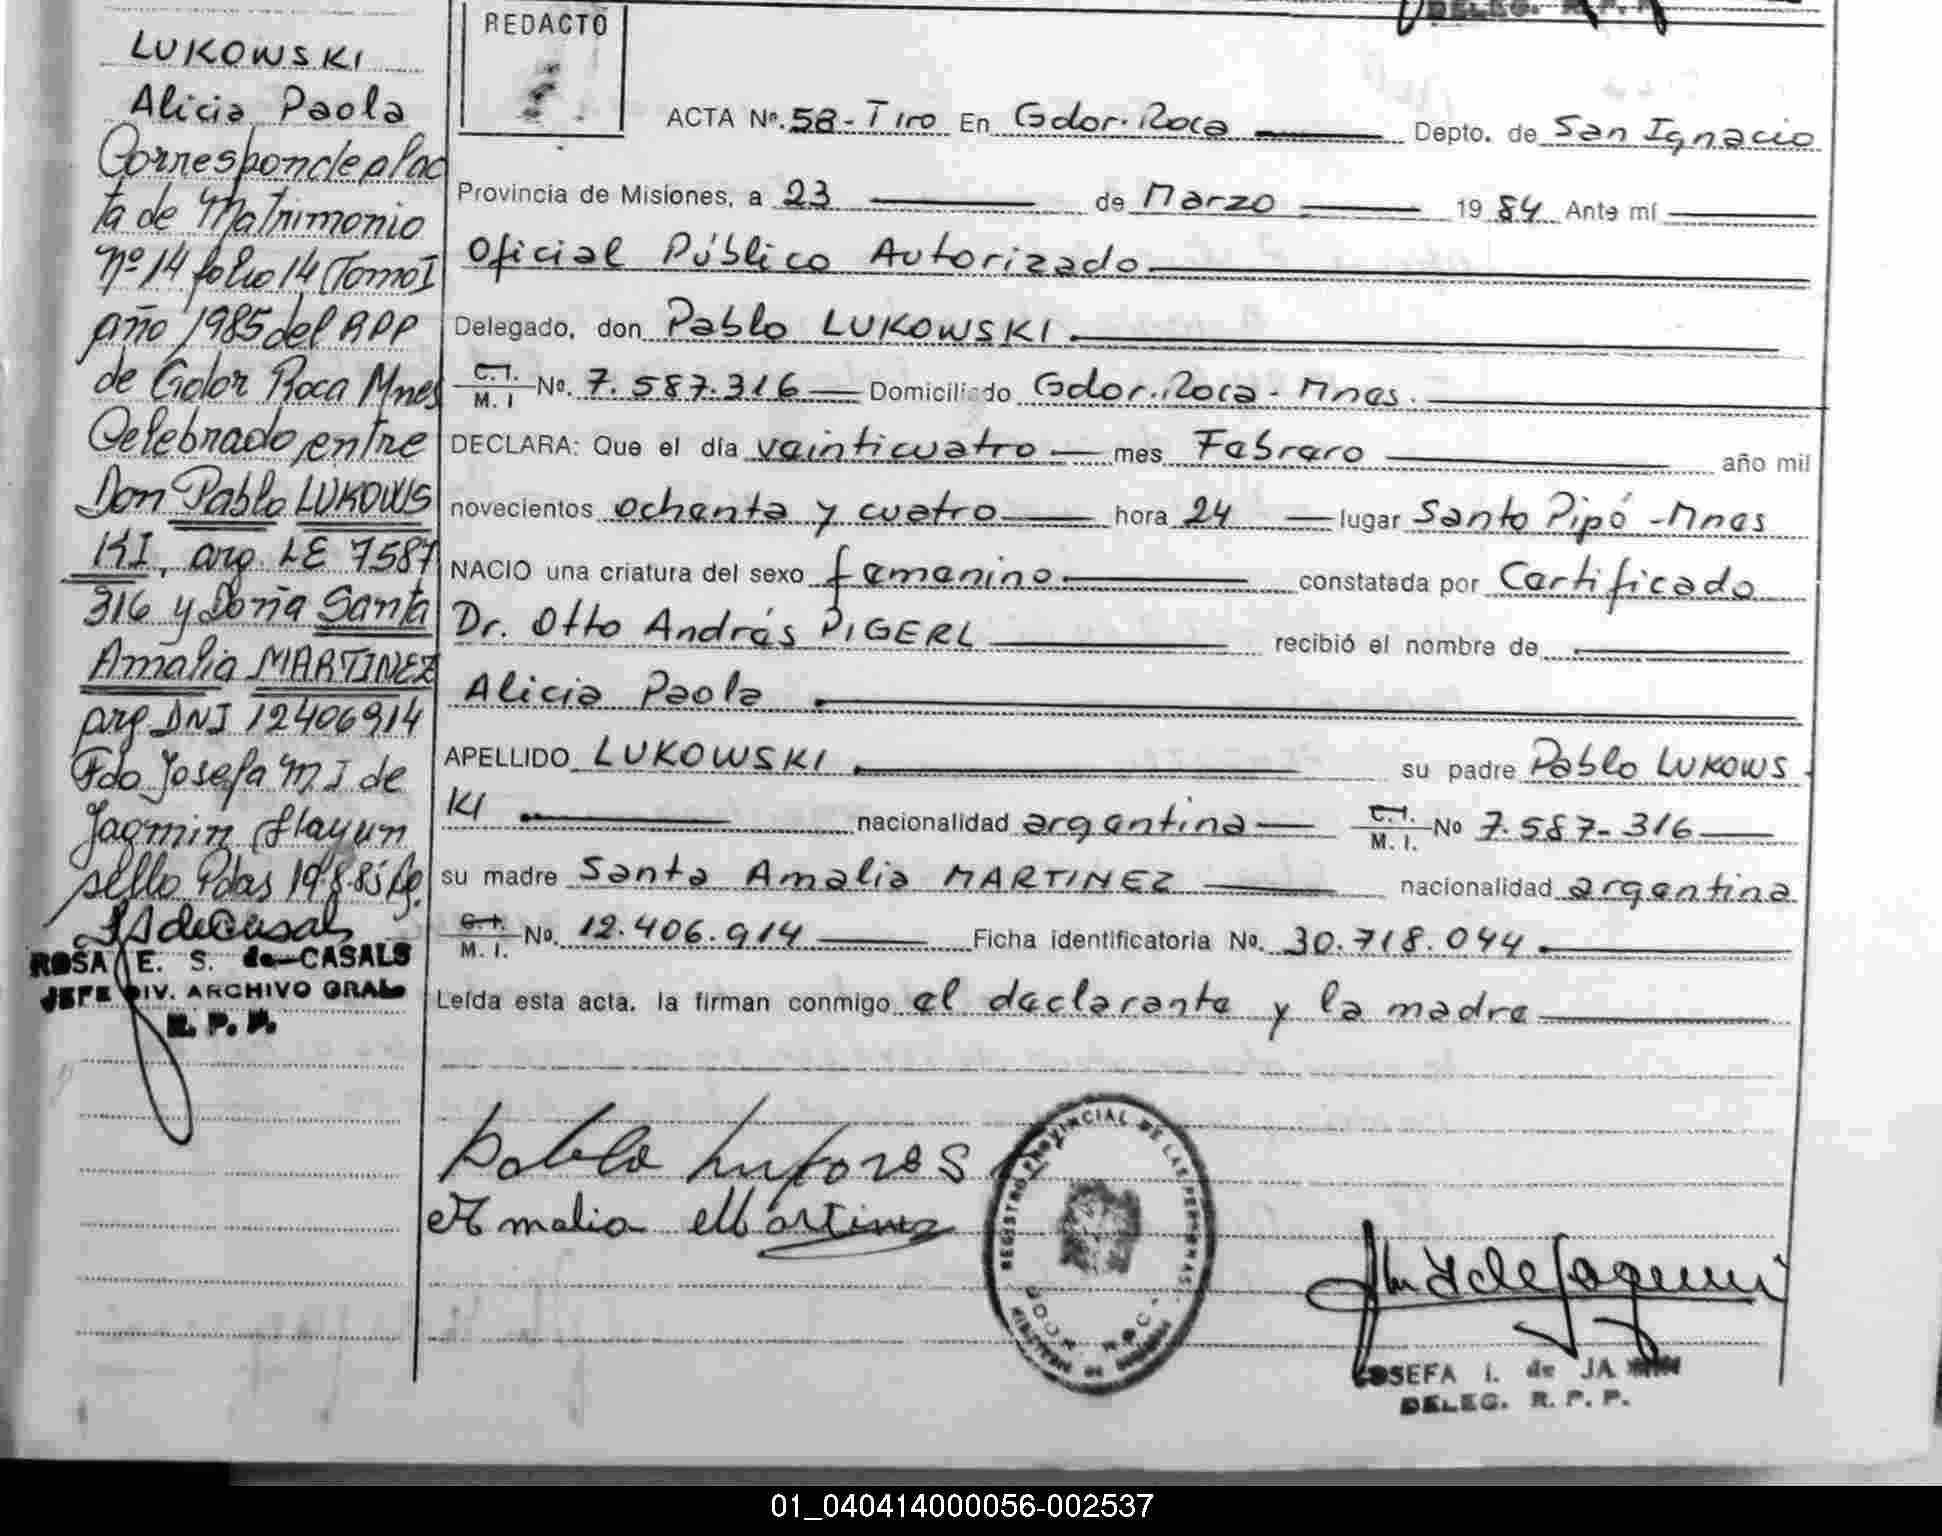 DELEG. R. P. P.
LUKOWSKI
Alicia Paola
Corresponde al ac
ta de Matrimonio
Nº 14 folio 14 Tomo I
año 1985 del RPP
de Gdor Roca Mnes
Celebrado entre
Don Pablo LUKOWS
KI, arg. LE 7587
316 y Doña Santa
Amalia MARTINEZ
arg DNI 12406914
Fdo Josefa M I de
Jagmin Hay un
sello Pdas 19.8.85
ROSA E. S. de CASALS
JEFE DIV. ARCHIVO GRAL
R. P. P.
REDACTO
ACTA Nº. 58 - Tiro En Gdor. Roca Depto. de San Ignacio
Provincia de Misiones, a 23 de Marzo 19 84 Ante mí
Oficial Público Autorizado
Delegado, don Pablo LUKOWSKI
C.I. M. I Nº. 7.587.316 Domiciliado Gdor. Roca - Mnes.
DECLARA: Que el día veinticuatro mes Febrero año mil
novecientos ochenta y cuatro hora 24 lugar Santo Pipó - Mnes
NACIO una criatura del sexo femenino constatada por Certificado
Dr. Otto Andrés PIGERL recibió el nombre de
Alicia Paola
APELLIDO LUKOWSKI su padre Pablo LUKOWS
KI nacionalidad argentina C.I. M. I. Nº 7.587-316
su madre Santa Amalia MARTINEZ nacionalidad argentina
C.I. M. I. Nº. 12.406.914 Ficha identificatoria Nº. 30.718.044
Leída esta acta, la firman conmigo el declarante y la madre
Pablo
Amalia Martinez
REGISTRO PROVINCIAL DE LAS PERSONAS
JOSEFA I. de JA
DELEG. R. P. P.
01_040414000056-002537